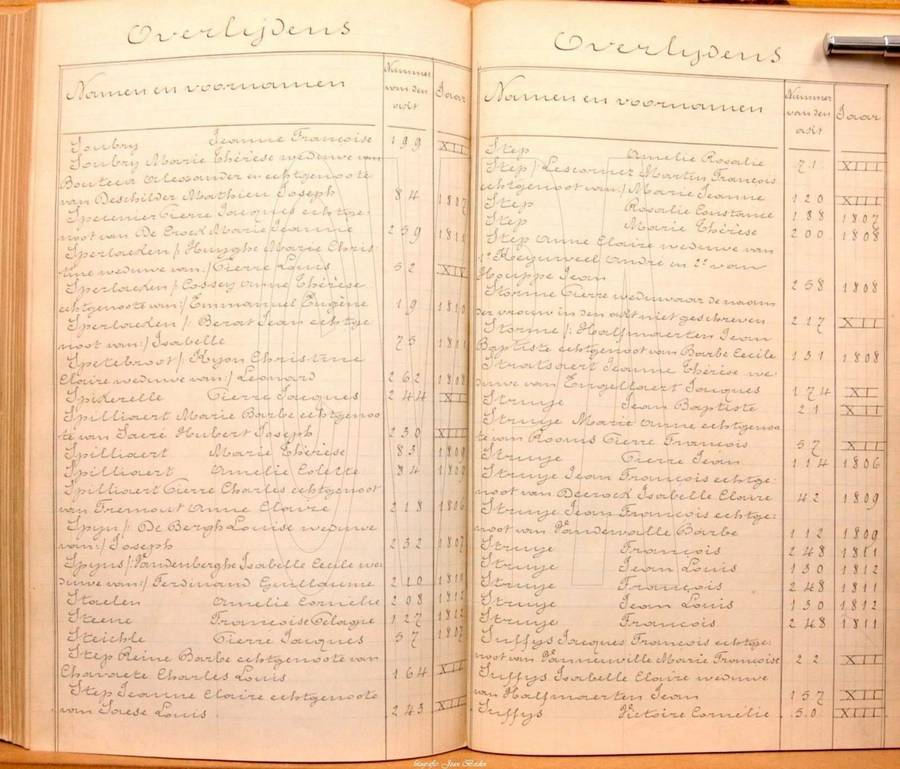 Overlijdens
Namen en voornamen Nummer van den akt Jaar
Soubry Jeanne Françoise 199 XII
Soubry Marie Thérèse weduwe van
Bouteca Alexander en echtgenoote
van Deschilder Mathieu Joseph 84 1807
Specenier Pierre Jacques echtge-
noot van De Crock Marie Jeanne 259 1811
Sperlaeken /: Huyghe Marie Chris-
tine weduwe van :/ Pierre Louis 52 XIV
Sperlaeken /: Cossey Anne Thérèse
echtgenoote van :/ Emmanuel Eugène 19 1810
Sperlaeken /: Berat Jean echtge-
noot van :/ Isabelle 73 1811
Spetebroot /: Ryon Christine
Claire weduwe van :/ Léonard 262 1808
Spikerelle Pierre Jacques 244 XI
Spilliaert Marie Barbe echtgenoo-
te van Sacré Hubert Joseph 230 XIII
Spilliaert Marie Thérèse 83 1809
Spilliaert Amelie Colette 84 1809
Spilliaert Pierre Charles echtgenoot
van Fremout Anne Claire 218 1806
Spyn /: De Bergh Louise weduwe
van :/ Joseph 232 1807
Spyns /: Vandenberghe Isabelle Cecile we-
duwe van :/ Ferdinand Guillaume 210 1810
Staelen Amelie Cornelie 208 1812
Steene Françoise Pélagie 127 1812
Steichle Pierre Jacques 57 1807
Step Reine Barbe echtgenoote van
Charaete Charles Louis 164 XII
Step Jeanne Claire echtgenoote
van Saese Louis 243 XII
Overlijdens
Namen en voornamen Nummer van den akt Jaar
Step Amelie Rosalie 71 XIII
Step /: Lescornez Martin François
echtgenoot van :/ Marie Jeanne 120 XIII
Step Rosalie Constance 188 1807
Step Marie Thérèse 200 1808
Step Anne Claire weduwe van
1° Keyuweel André en 2° van
Houppe Jean 258 1808
Storme Pierre weduwaar de naam
der vrouw in den akt niet geschreven 217 XII
Storme /: Halfmaerten Jean
Baptiste echtgenoot van Barbe Cecile 131 1808
Straetsaert Jeanne Thérèse we-
duwe van Engellaert Jacques 174 XI
Struye Jean Baptiste 21 XII
Struye Marie Anne echtgenoo-
te van Rooms Pierre François 57 XII
Struye Pierre Jean 114 1806
Struye Jean François echtge-
noot van Decrock Isabelle Claire 42 1809
Struye Jean François echtge-
noot van Vandewalle Barbe 112 1809
Struye François 248 1811
Struye Jean Louis 130 1812
Struye François 248 1811
Struye Jean Louis 130 1812
Struye François 248 1811
Suffys Jacques François echtge-
noot van Vanneuville Marie Françoise 22 XII
Suffys Isabelle Claire weduwe
van Halfmaerten Jean 157 XII
Suffys Victoire Cornélie 50 XIII
fotografie: Jean Baslen